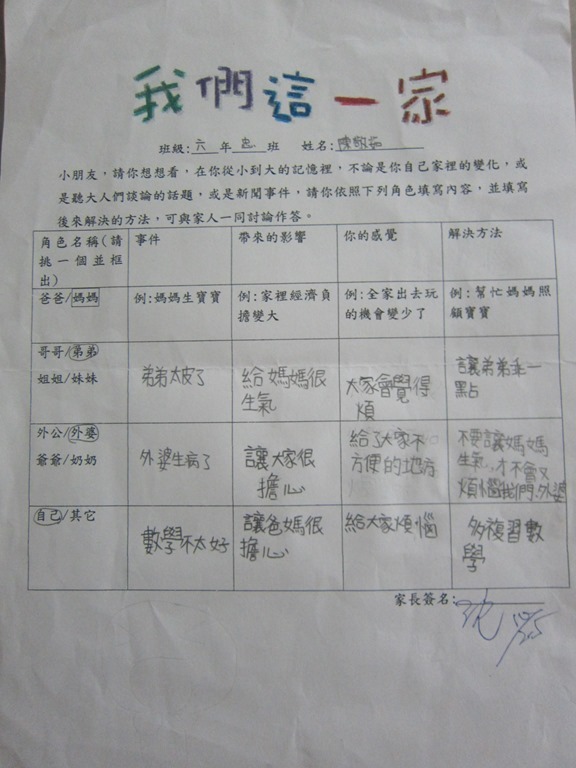 我們這一家
班級:六年忠班 姓名:陳
小朋友，請你想想看，在你從小到大的記憶裡，不論是你自己家裡的變化，或
是聽大人們談論的話題，或是新聞事件，請你依照下列角色填寫內容，並填寫
後來解決的方法，可與家人一同討論作答。
角色名稱(請
挑一個並框
出)
事件
帶來的影響
你的感覺
解決方法
爸爸/媽媽
例:媽媽生寶寶
例:家裡經濟負
擔變大
例:全家出去玩
的機會變少了
例:幫忙媽媽照
顧寶寶
哥哥/弟弟
姐姐/妹妹
弟弟太皮了
給媽媽很
生氣
大家會覺得
煩
讓弟弟乖一
點
外公/外婆
爺爺/奶奶
外婆生病了
讓大家很
擔心
給了大家不
方便的地方
不要讓媽媽
生氣，才不會又
煩惱我們、外婆
自己/其它
數學不太好
讓爸媽很
擔心
給大家煩惱
多複習數
學
家長簽名: